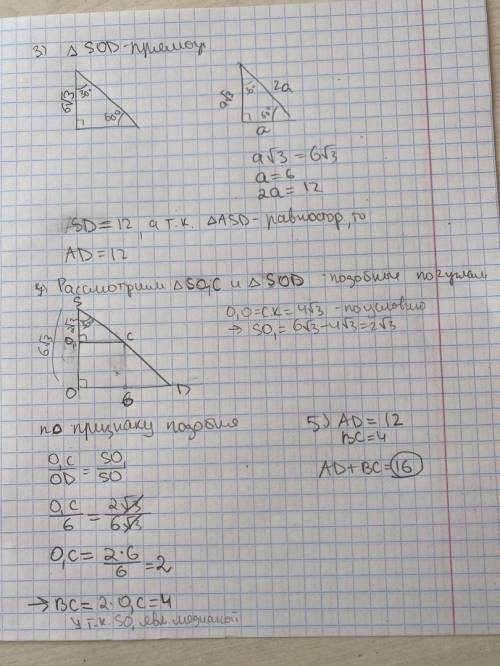 3) △ SOD-прямоу.
6√3 30° 60°
a√3 30° 2a 60° a
a√3 = 6√3
a = 6
2a = 12
SD = 12, а т.к. △ASD - равностор, то
AD = 12
4) Рассмотрим △SO₁C и △SOD - подобные по 2 углам,
O₁O = CK = 4√3 - по условию
→ SO₁ = 6√3 - 4√3 = 2√3
S
6√3 O₁ C
O 6 D
по признаку подобия
O₁C/OD = SO₁/SO
O₁C/6 = 2√3/6√3
O₁C = 2·6/6 = 2
→ BC = 2·O₁C = 4
т.к. SO₁ явл. медианой
5) AD = 12
BC = 4
AD + BC = 16